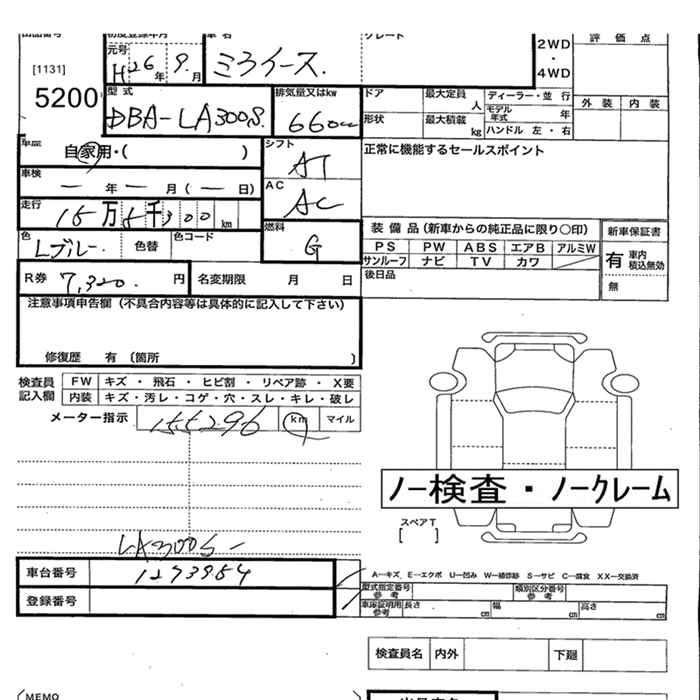 初度登録年月 車名 グレード
[1131]
5200
元号 H26年 9月
ミライース.
2WD
・
4WD
評価点
外装 内装
型式 DBA-LA300S.
排気量又はkw 660cc
ドア 最大定員 人
形状 最大積載 kg
ディーラー・並行
モデル年式 年
ハンドル 左・右
車歴 自家用・( )
シフト AT
正常に機能するセールスポイント
車検 ー 年 ー 月 ( ー 日)
AC AC
走行 15万5千300km
燃料 G
色 Lブルー. 色替 色コード
装備品(新車からの純正品に限り○印) 新車保証書
PS PW ABS エアB アルミW
サンルーフ ナビ TV カワ
有 車内積込無効
無
後日品
R券 7,320. 円 名変期限 月 日
注意事項申告欄(不具合内容等は具体的に記入して下さい)
修復歴 有〔箇所 〕
検査員記入欄
FW キズ・飛石・ヒビ割・リペア跡・X要
内装 キズ・汚レ・コゲ・穴・スレ・キレ・破レ
メーター指示 155296 km マイル
ノー検査・ノークレーム
スペアT
[ ]
LA300S-
車台番号 1273954
登録番号
A―キズ E―エクボ U―凹み W―補修跡 S―サビ C―腐食 XX―交換済
型式指定番号 参考 類別区分番号 参考
車庫証明用 参考 長さ cm 幅 cm 高さ cm
検査員名 内外 下廻
MEMO